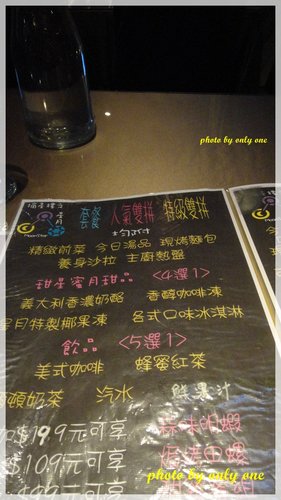 photo by only one
套餐 人氣雙拼 特級雙拼
均附
精緻前菜 今日湯品 現烤麵包
養身沙拉 主廚熱盤
甜星蜜月甜品 <4選1>
義大利香濃奶酪 香醇咖啡凍
星月特製椰果凍 台式口味冰淇淋
飲品 <5選1>
美式咖啡 蜂蜜紅茶
頓奶茶 汽水 鮮果汁
加$199元可享 蒜味明蝦
$109元可享 焗烤田螺
元可享
photo by only one